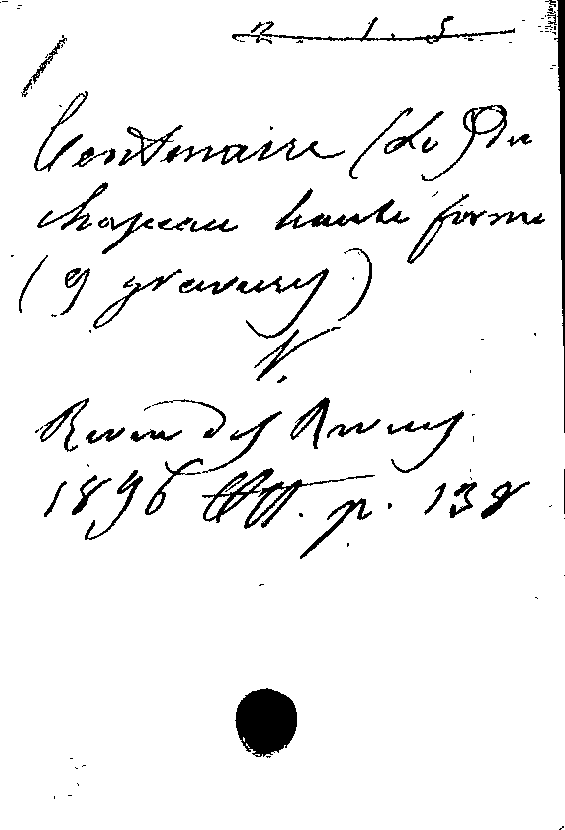 2. 1. 5
Centenaire (Le) Du
chapeau haute forme
(9 gravures)
V.
Revue des Revues
1896 III. p. 138